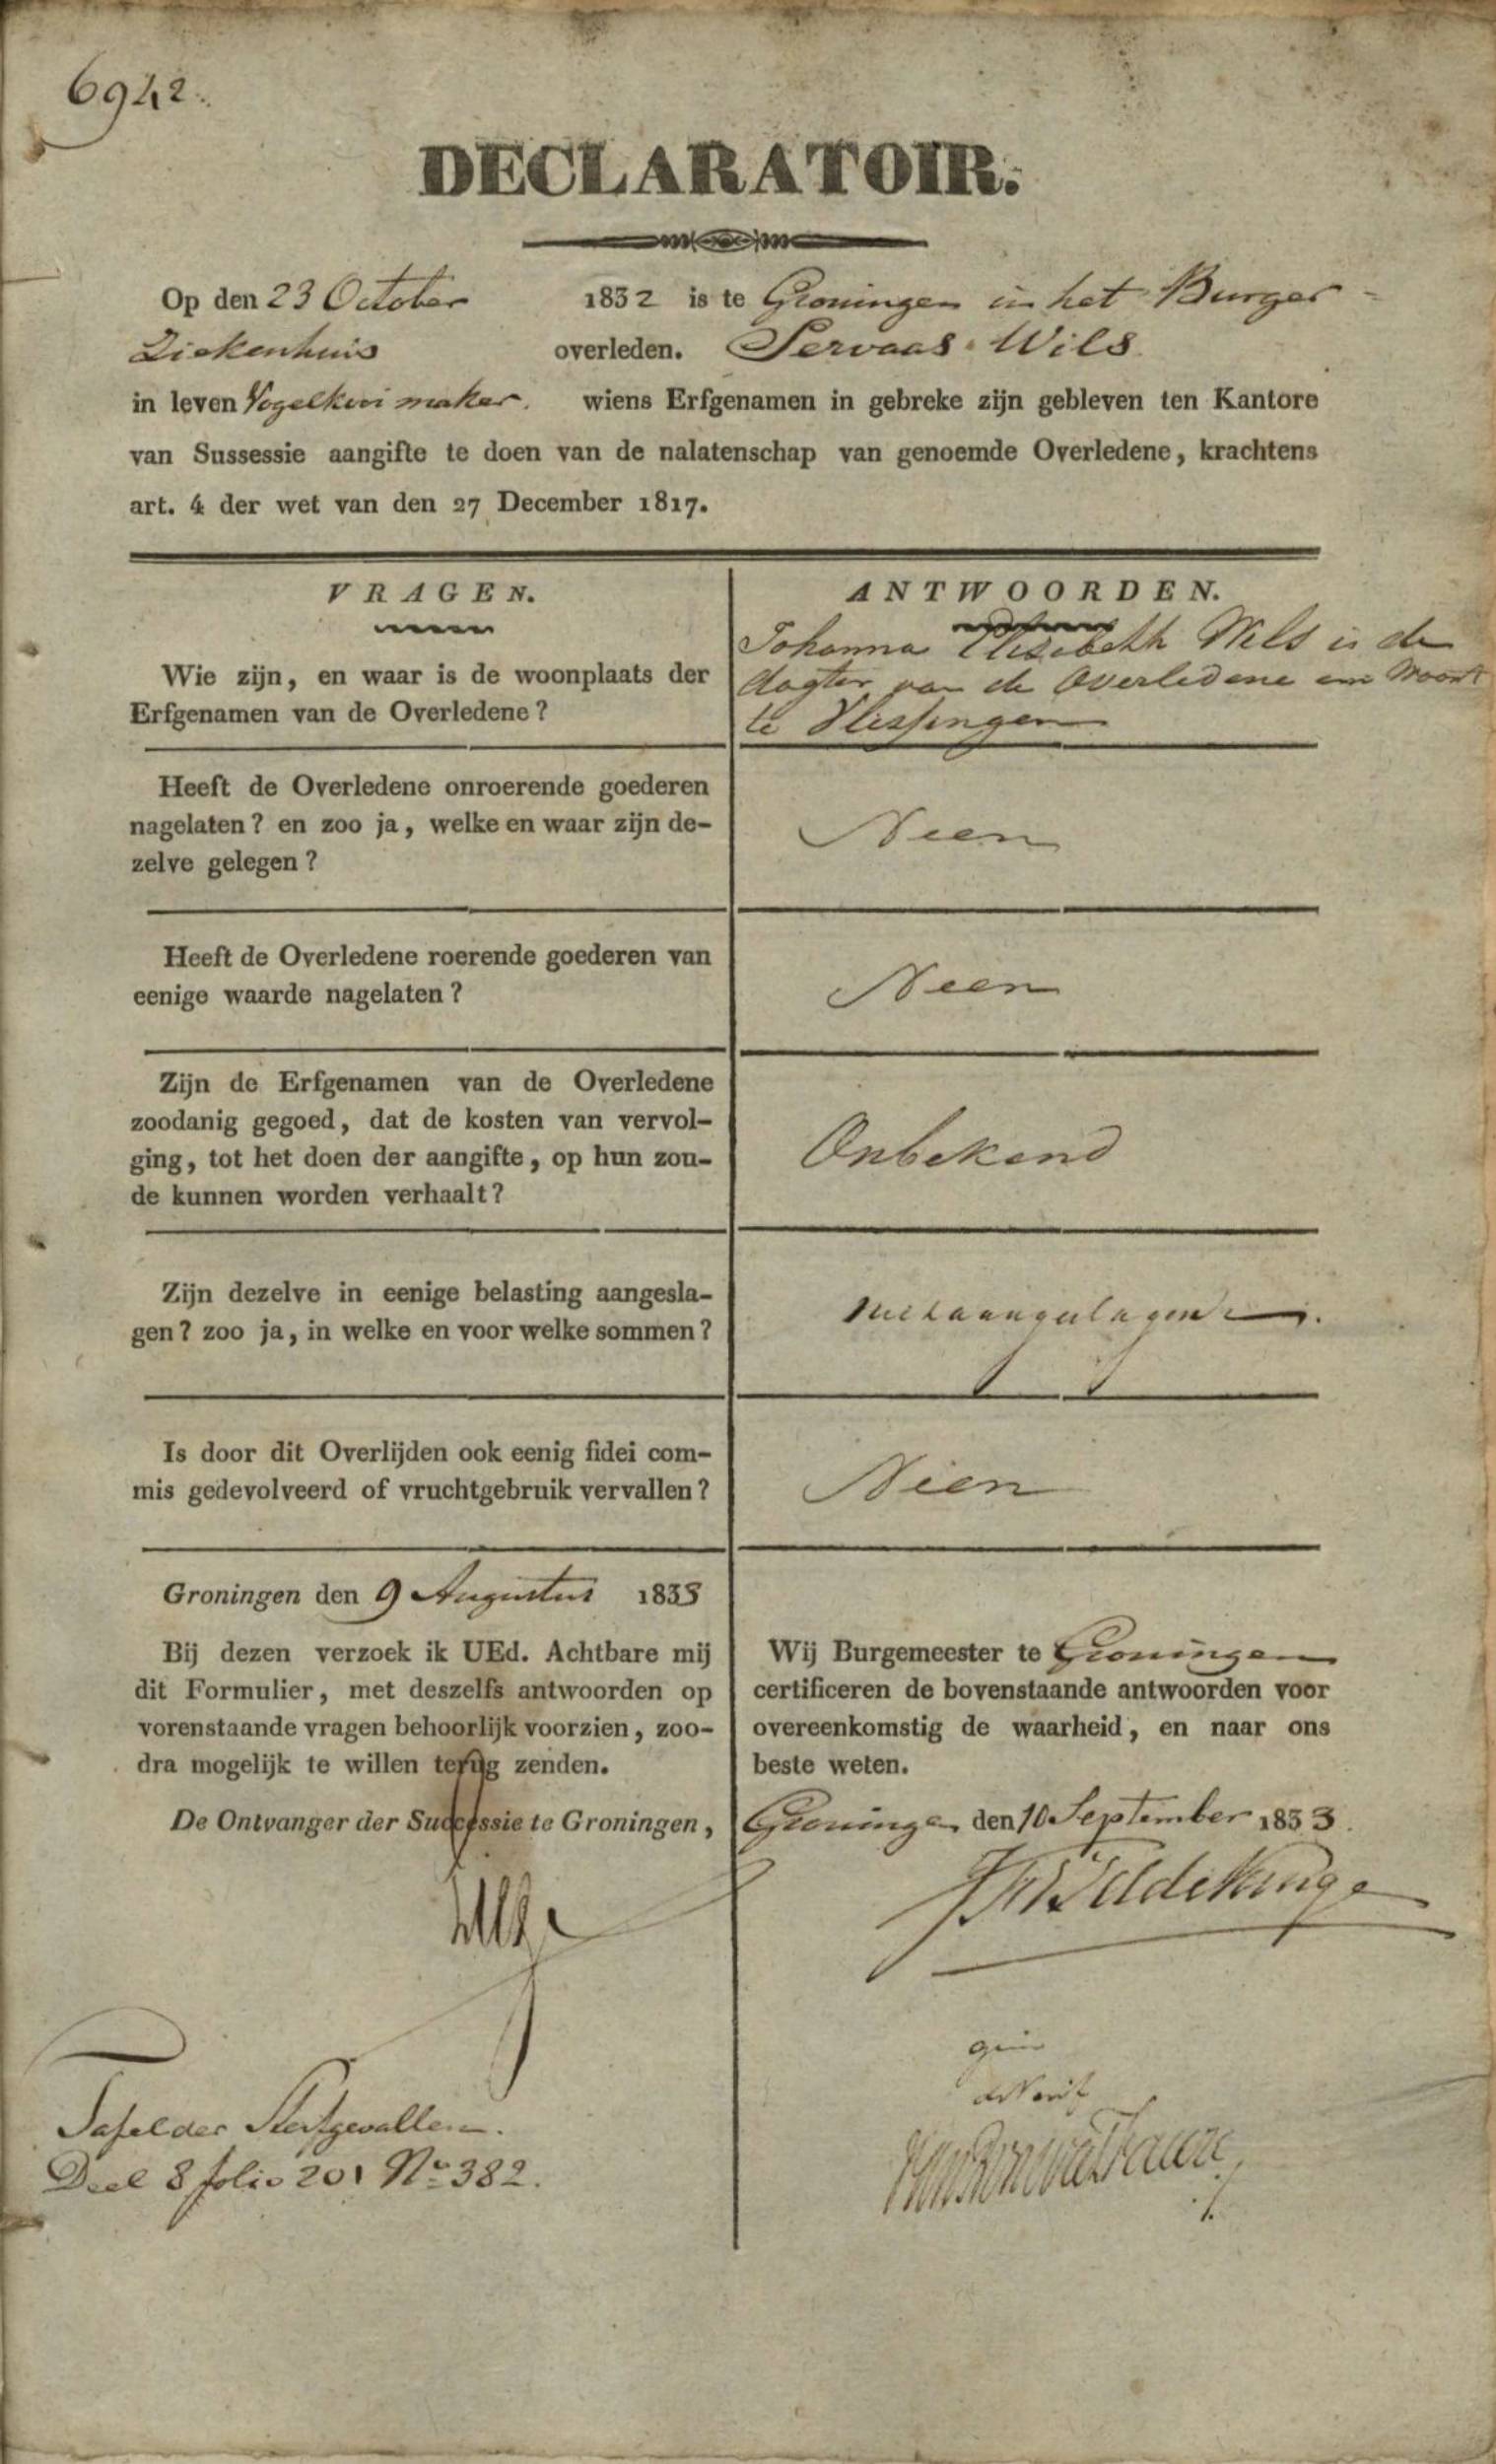 6942.
DECLARATOIR.
Op den 23 October 1832 is te Groningen in het Burger-
Ziekenhuis overleden. Servaas Wils
in leven Vogelkooi maker. wiens Erfgenamen in gebreke zijn gebleven ten Kantore
van Sussessie aangifte te doen van de nalatenschap van genoemde Overledene, krachtens
art. 4 der wet van den 27 December 1817.
VRAGEN.
ANTWOORDEN.
Wie zijn, en waar is de woonplaats der
Erfgenamen van de Overledene?
Johanna Elisabeth Wils is de
dogter van de Overledene en woont
te Vlissingen
Heeft de Overledene onroerende goederen
nagelaten? en zoo ja, welke en waar zijn de-
zelve gelegen?
Neen
Heeft de Overledene roerende goederen van
eenige waarde nagelaten?
Neen
Zijn de Erfgenamen van de Overledene
zoodanig gegoed, dat de kosten van vervol-
ging, tot het doen der aangifte, op hun zou-
de kunnen worden verhaalt?
Onbekend
Zijn dezelve in eenige belasting aangesla-
gen? zoo ja, in welke en voor welke sommen?
Is door dit Overlijden ook eenig fidei com-
mis gedevolveerd of vruchtgebruik vervallen?
Neen
Groningen den 9 Augustus 1833
Bij dezen verzoek ik UEd. Achtbare mij
dit Formulier, met deszelfs antwoorden op
vorenstaande vragen behoorlijk voorzien, zoo-
dra mogelijk te willen terug zenden.
De Ontvanger der Successie te Groningen,
Wij Burgemeester te Groningen
certificeren de bovenstaande antwoorden voor
overeenkomstig de waarheid, en naar ons
beste weten.
Groningen den 10 September 1833.
Tafel der Sterfgevallen.
Deel 8 folio 201 No. 382.